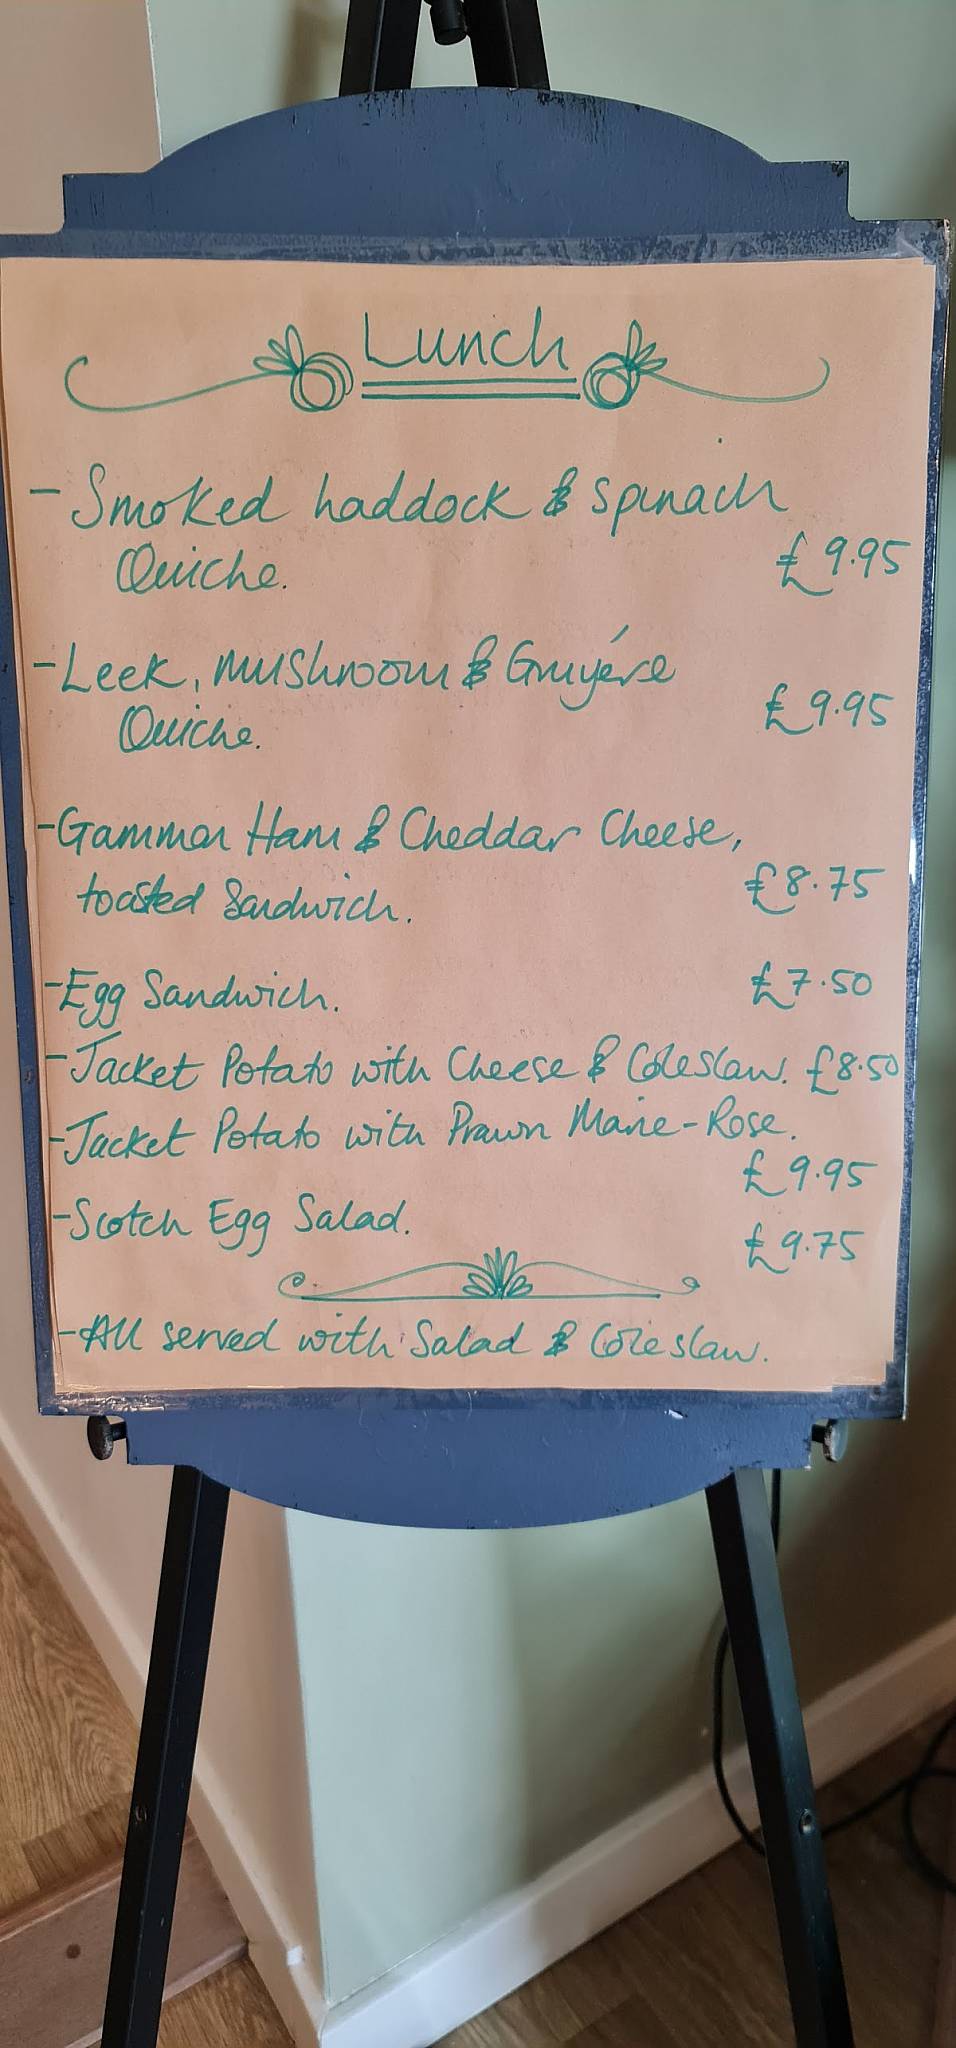 Lunch
- Smoked haddock & Spinach
Quiche. £9.95
- Leek, mushroom & Gruyére
Quiche. £9.95
- Gammon Ham & Cheddar Cheese,
toasted Sandwich. £8.75
- Egg Sandwich. £7.50
- Jacket Potato with Cheese & Coleslaw. £8.50
- Jacket Potato with Prawn Marie-Rose.
£9.95
- Scotch Egg Salad. £9.75
- All served with Salad & Coleslaw.